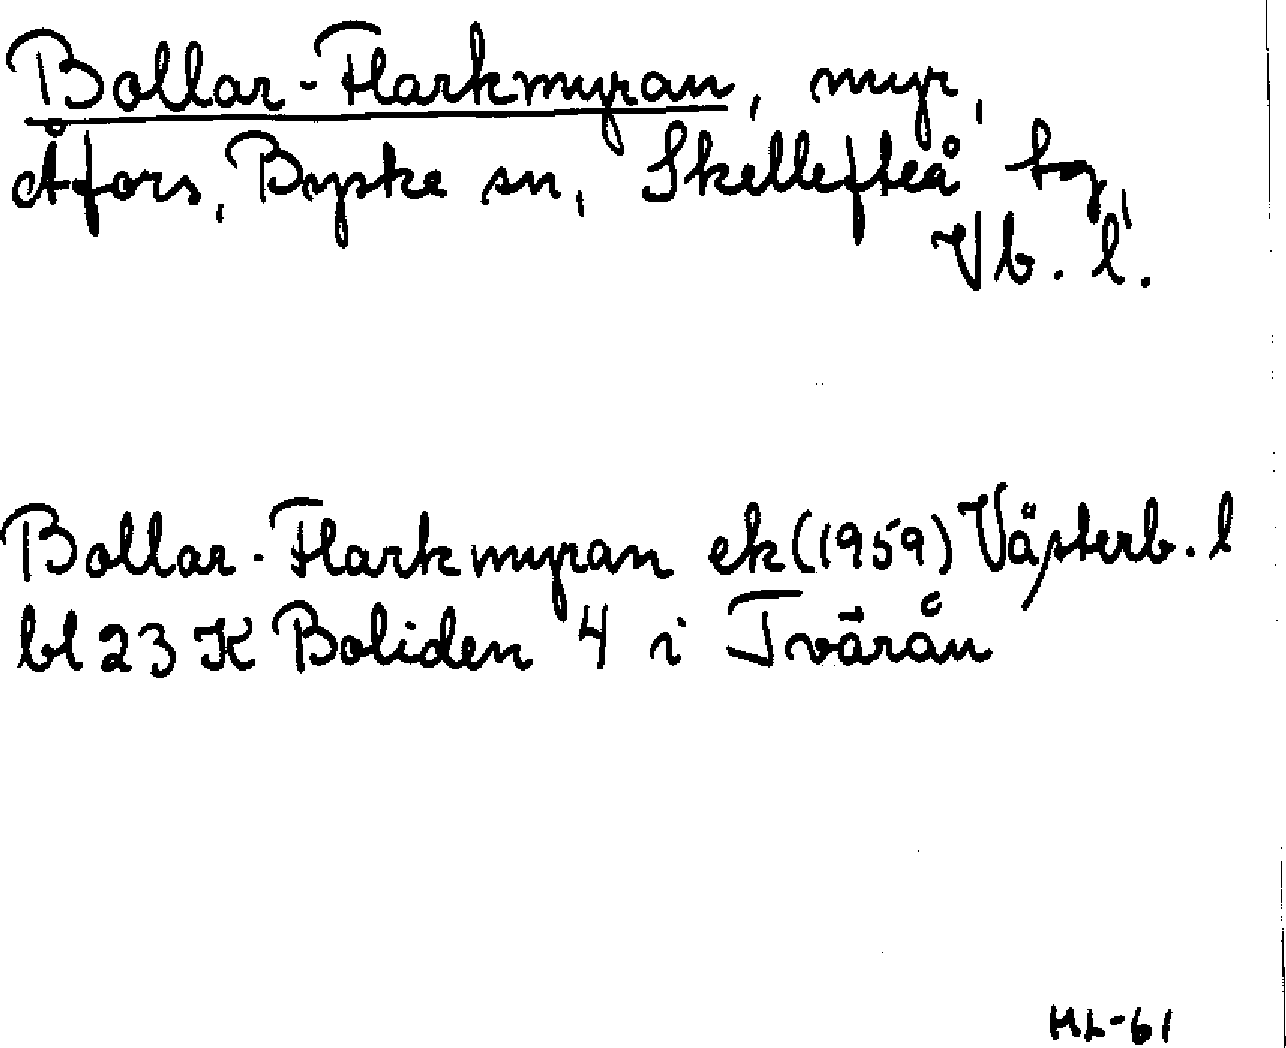 Bollar-Flarkmyran, myr,
Åfors, Byske sn, Skellefteå tg,
Vb. l.
Bollar-Flarkmyran ek (1959) Västerb. l
bl 23 K Boliden 4 i Tvärån
HL-61